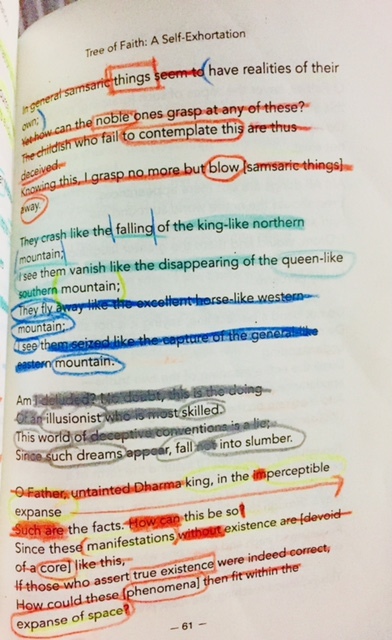 Tree of Faith: A Self-Exhortation
In general samsaric things seem to have realities of their
own;
Yet how can the noble ones grasp at any of these?
The childish who fail to contemplate this are thus
deceived.
Knowing this, I grasp no more but blow [samsaric things]
away.
They crash like the falling of the king-like northern
mountain;
I see them vanish like the disappearing of the queen-like
southern mountain;
They fly away like the excellent horse-like western
mountain;
I see them seized like the capture of the general-like
eastern mountain.
Am I deluded? No doubt, this is the doing
Of an illusionist who is most skilled.
This world of deceptive conventions is a lie;
Since such dreams appear, fall not into slumber.
O Father, untainted Dharma king, in the imperceptible
expanse
Such are the facts. How can this be so?
Since these manifestations without existence are [devoid
of a core] like this,
If those who assert true existence were indeed correct,
How could these [phenomena] then fit within the
expanse of space?
— 61 —